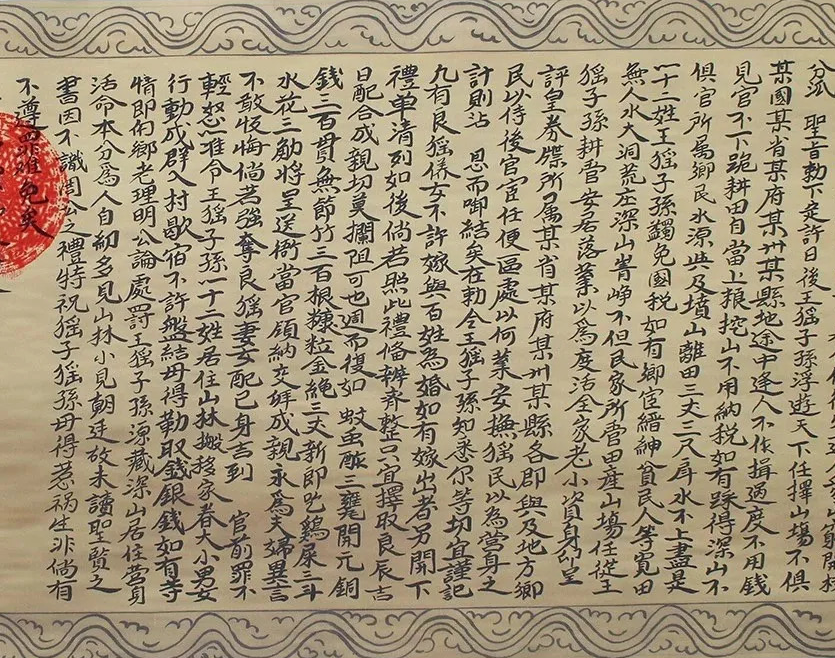 分派 聖旨勅下定許日後王猺子孫浮遊天下任擇山場不俱
某國某省某府某州某縣地途中逢人不作揖過度不用錢
見官不下跪耕田自當上粮挖山不用納税如有踩得深山不
俱官所属鄉民水源共及墳山離田三丈三尺戽水不上盡是
一十二姓王猺子孫蠲免國税如有鄉宦縉紳貧民人等寬田
無人水大洞荒庄深山峥不但民家所营田產山場任從王
猺子孫耕营安居落業以爲度活全家老小資身叩呈
評皇券牒所属某省某府某州某縣各即與及地方鄉
民以侍後官宦任便區處以何業安撫猺民以為营身之
計則沾 恩而啣結矣在勅令王猺子孫知悉尔等切宜謹記
凡有良猺儀女不許嫁與百姓為婚如有嫁出者另開下
禮單清列如後倘若照此禮俻辦齊整只宜擇取良辰吉
日配合成親切莫攔阻可也週而復如 蚊虫酢三甕開元銅
錢三百貫無節竹三百根糠粒金繩三丈新即鷄屎三斗
水花三觔將呈送衙當官領納交鮮成親永爲夫婦異言
不敢悔倘若強奪良猺妻女配已身吉到 官前罪不
輕恕准令王猺子孫一十二姓居住山林搬移家眷大小男女
行動成群入村歇宿不許盤結毋得勒取錢銀錢如有等
情即向鄉老理明公論處罸王猺子孫源藏深山居住营身
活命本分爲人自幼多見山林小見朝廷故未讀聖賢之
書因不識周公之禮特祝猺子猺孫毋得惹禍生非倘有
不遵罪难免矣